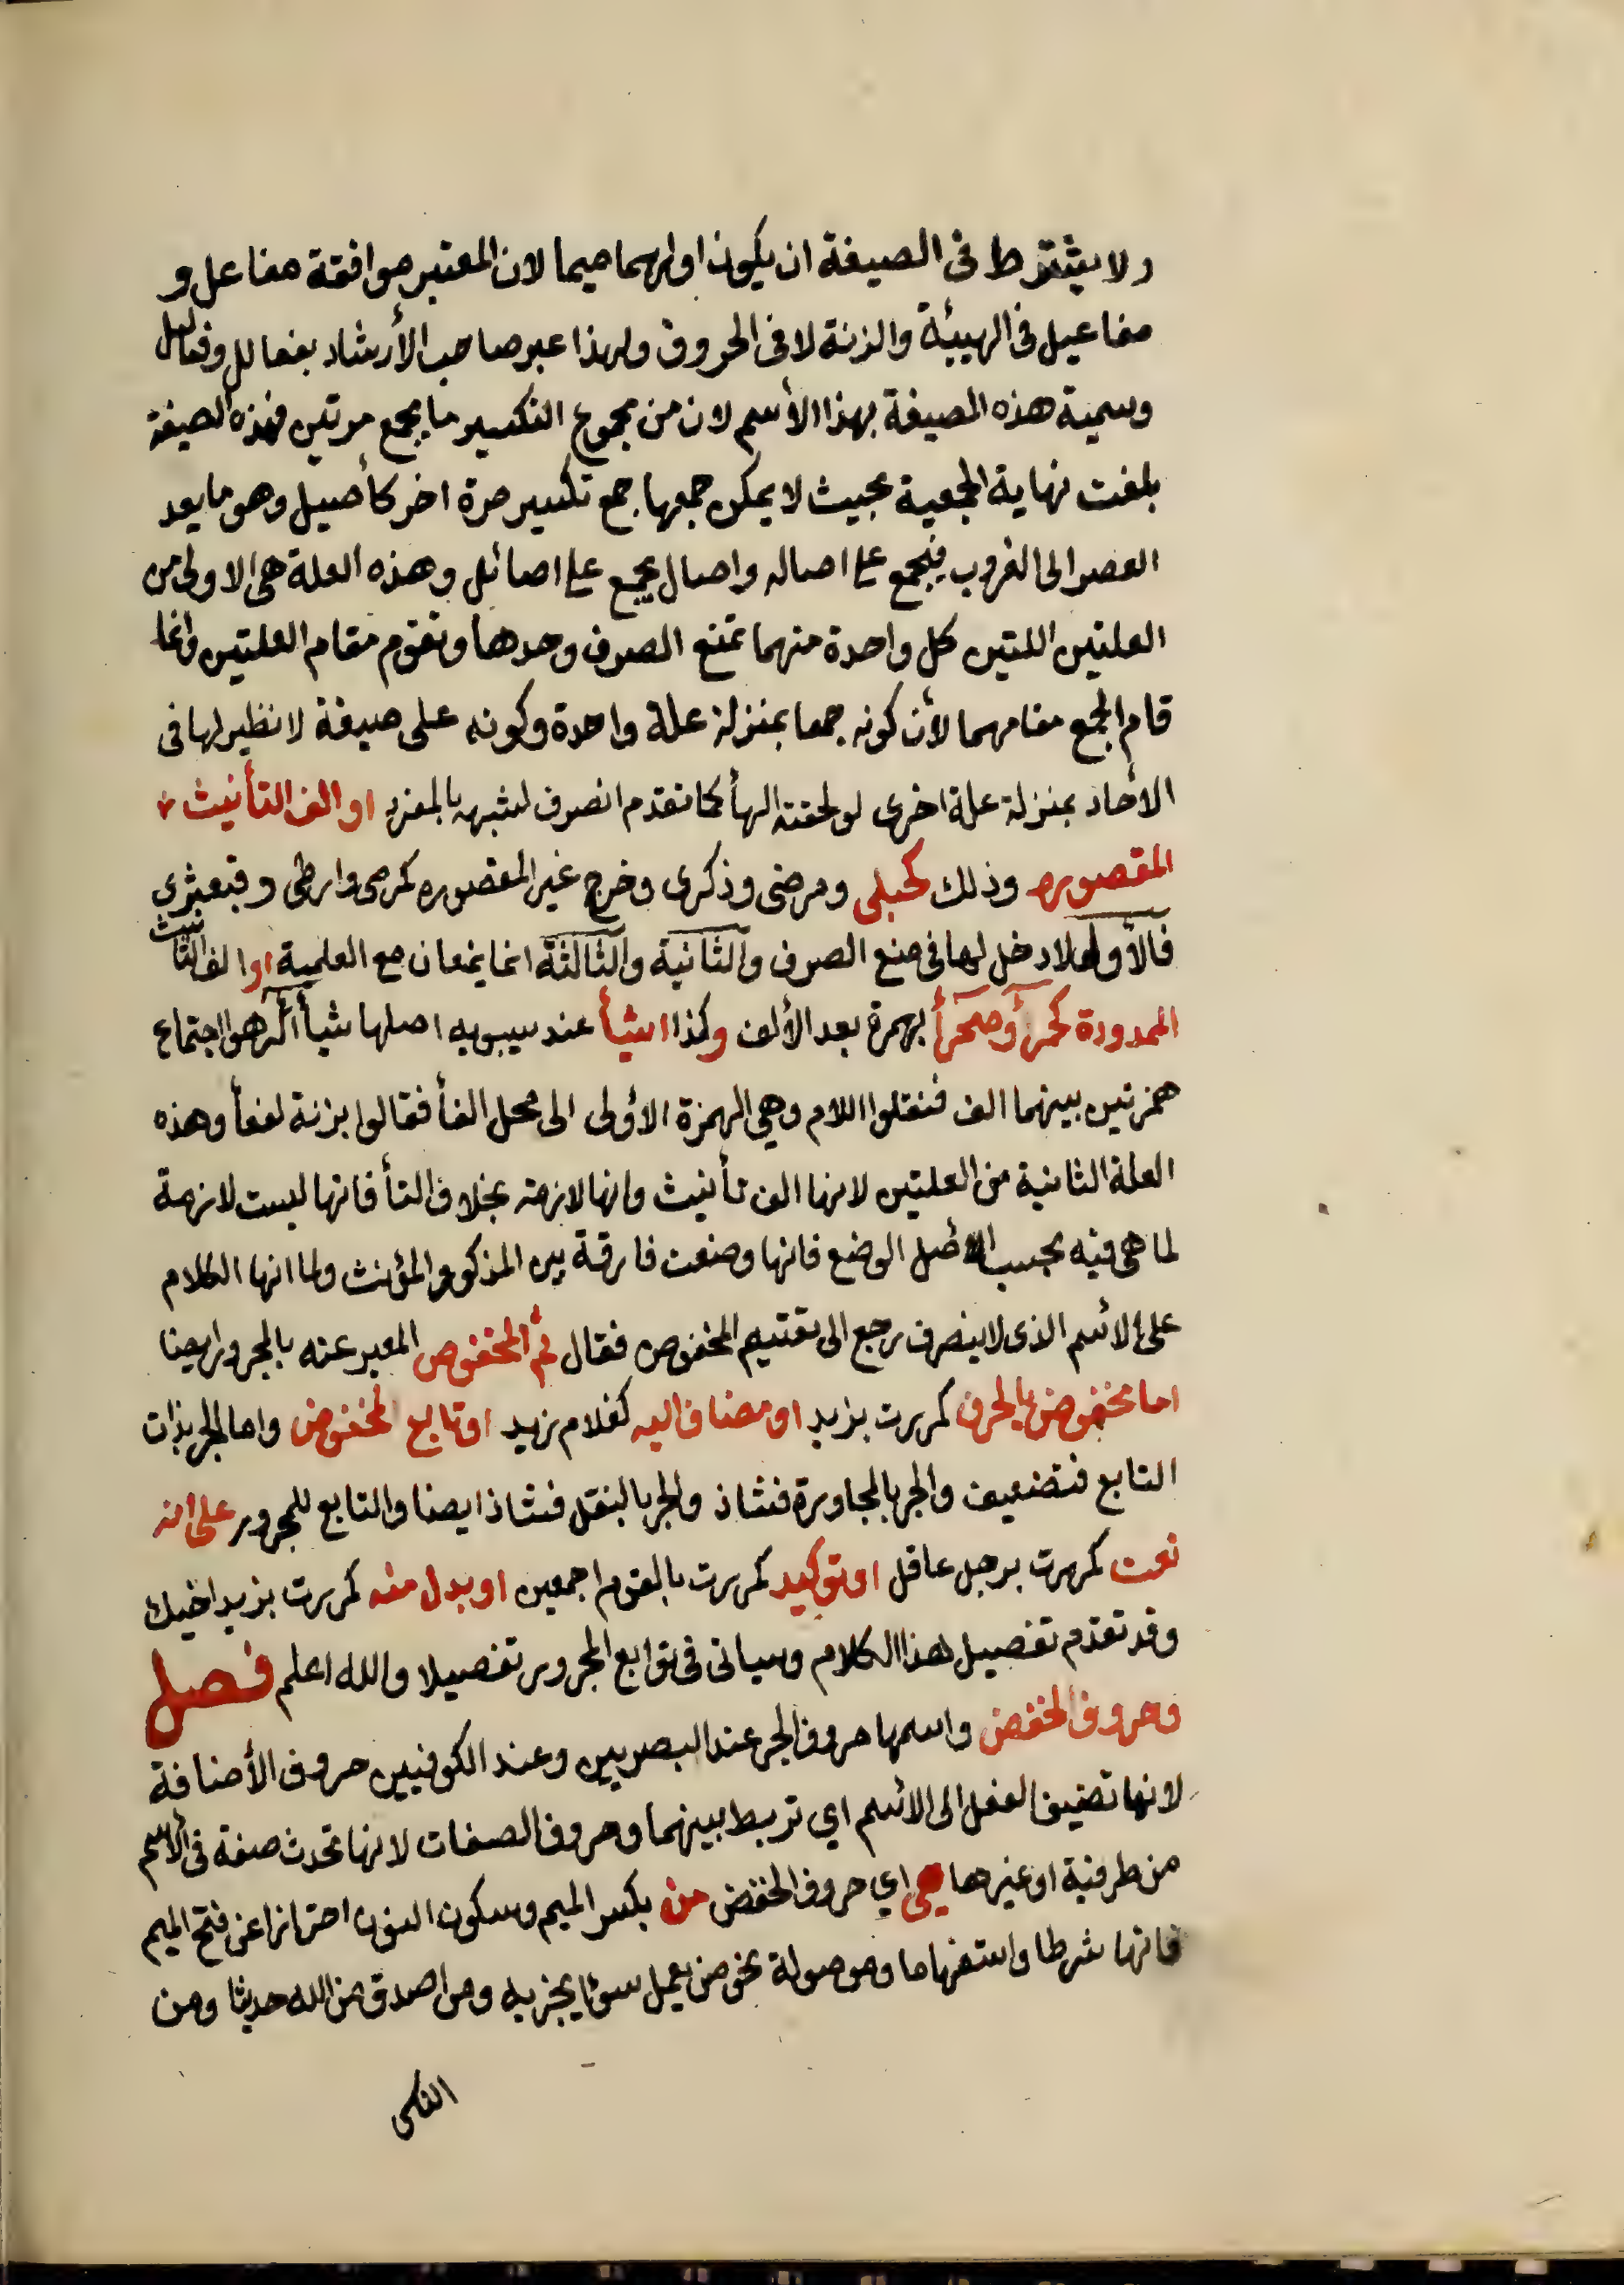 ولا يشترط في الصيغة ان يكون اولهما ميما لان المعتبر موافقة مفاعل و
مفاعيل في الهيئة والزنة لا في الحروف ولهذا عبر صاحب الأرشاد بفعالل وفعاليل
وسمية هذه الصيغة بهذا الأسم لان من مجموع التكسير ما يجمع مرتين فهذه الصيغة
بلغت نهاية الجمعية بحيث لا يمكن جمعها جمع تكسير مرة اخر كأصيل وهو ما بعد
العصر الى الغروب فيجمع على اصال واصال يجمع على اصائل وهذه العلة هي الاولى من
العلتين اللتين كل واحدة منهما تمنع الصرف وحدها وتقوم مقام العلتين وانما
قام الجمع مقامهما لأن كونه جمعا بمنزلة علة واحدة وكونه على صيغة لا نظير لها في
الأحاد بمنزلة علة اخرى لو لحقته الهأ كما تقدم انصرف لشبهه بالمفرد او الف التأنيث
المقصوره وذلك كحبلى ومرضى وذكرى وخرج غير المقصوره كمرمى وارطى وقبعثرى
فالأولى لا دخل لها في منع الصرف والثانية والثالثة انما يمنعان مع العلمية او الف التأنيث
الممدودة كحمرأ وصحرأ بهمزة بعد الألف وكذا اشيأ عند سيبويه اصلها شيأأ كرهوا اجتماع
همزتين بينهما الف فنقلوا اللام وهي الهمزة الاؤلى الى محل الفأ فقالوا بزنة لفعأ وهذه
العلة الثانية من العلتين لانها الف تأنيث وانها لازمة بخلاف التأ فانها ليست لازمة
لما هي فيه بحسب الأصل الوضع فانها وضعت فارقة بين المذكور والمؤنث ولما انها الكلام
على الأسم الذي لا ينصرف رجع الى تقسيم المخفوض فقال ثم المخفوض المعبر عنه بالمجرور ايضا
اما مخفوض بالحرف كمررت بزيد او مضاف اليه كغلام زيد او تابع المخفوض واما الجر بذات
التابع فتضعيف والجر بالمجاورة فشاذ والجر بالنقل فشاذ ايضا والتابع للمجرور على انه
نعت كمررت برجل عاقل او توكيد كمررت بالقوم اجمعين او بدل منه كمررت بزيد اخيك
وقد تقدم تفصيل هذا الكلام وسياتي في توابع المجرور تفصيلا والله اعلم فصل
وحروف الخفض واسمها حروف الجر عند البصريين وعند الكوفيين حروف الأضافة
لانها تضيف الفعل الى الأسم اي تربط بينهما وحروف الصفات لانها تحدث صفة في الأسم
من ظرفية او غيرها هي اي حروف الخفض من بكسر الميم وسكون النون احترازا عن فتح الميم
فانها شرطا واستفهاما وموصولة نحو من يعمل سوئا يجز به ومن اصدق من الله حديثا ومن